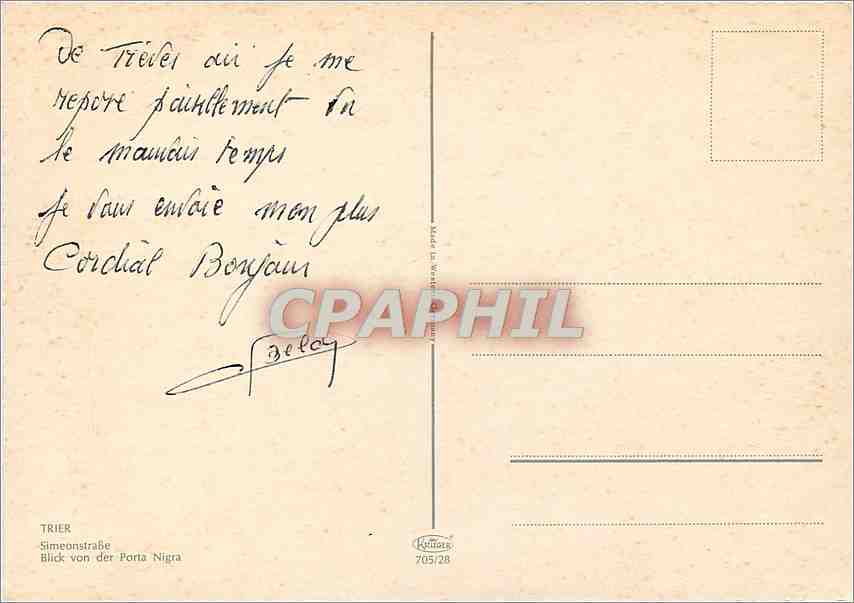 De Trèves où je me
repose paisiblement vu
le mauvais temps
je vous envoie mon plus
Cordial Bonjour
CPAPHIL
Made in Western Germany
TRIER
Simeonstraße
Blick von der Porta Nigra
KRÜGER
705/28